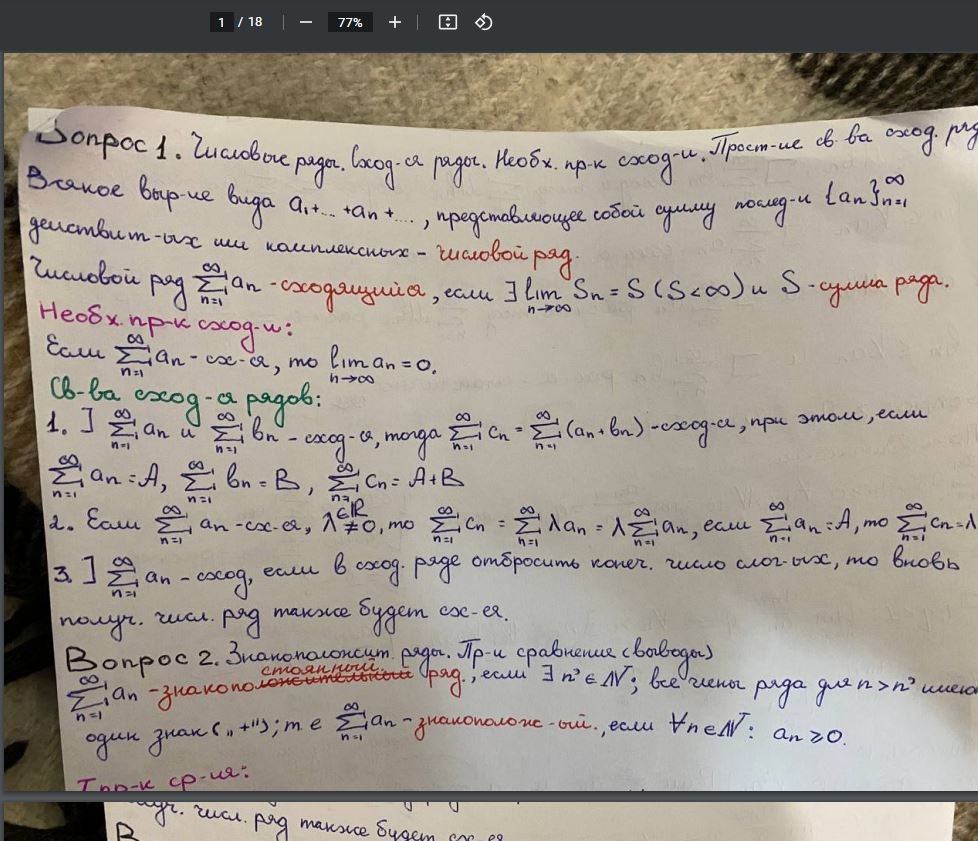 1 / 18 77%
Вопрос 1. Числовые ряды. Сход-ся ряды. Необх. пр-к сход-и. Прост-ие св-ва сход. ряд
Всякое выр-ие вида a₁+...+aₙ+..., представляющее собой сумму послед-и {aₙ}ₙ₌₁^∞
действит-ых или комплексных - числовой ряд.
Числовой ряд ∑ₙ₌₁^∞ aₙ - сходящийся, если ∃ lim_{n→∞} Sₙ = S (S<∞) и S - сумма ряда.
Необх. пр-к сход-и:
Если ∑ₙ₌₁^∞ aₙ - сх-ся, то lim_{n→∞} aₙ = 0.
Св-ва сход-ся рядов:
1. ] ∑ₙ₌₁^∞ aₙ и ∑ₙ₌₁^∞ bₙ - сход-ся, тогда ∑ₙ₌₁^∞ cₙ = ∑ₙ₌₁^∞ (aₙ+bₙ) - сход-ся, при этом, если
∑ₙ₌₁^∞ aₙ = A, ∑ₙ₌₁^∞ bₙ = B, ∑ₙ₌₁^∞ cₙ = A+B
2. Если ∑ₙ₌₁^∞ aₙ - сх-ся, λ ∈ℝ ≠0, то ∑ₙ₌₁^∞ cₙ = ∑ₙ₌₁^∞ λaₙ = λ∑ₙ₌₁^∞ aₙ, если ∑ₙ₌₁^∞ aₙ = A, то ∑ₙ₌₁^∞ cₙ = λ
3. ] ∑ₙ₌₁^∞ aₙ - сход, если в сход. ряде отбросить конеч. число слог-ых, то вновь
получ. числ. ряд также будет сх-ся.
Вопрос 2. Знакоположит. ряды. Пр-и сравнение (выводы)
стоянный
∑ₙ₌₁^∞ aₙ - знакоположительный ряд., если ∃ n° ∈ ℕ; все члены ряда для n > n° имею
один знак („+"); т е ∑ₙ₌₁^∞ aₙ - знакополож-ый., если ∀n∈ℕ: aₙ ≥ 0.
I пр-к ср-ия:
получ. числ. ряд также будет сх-ся